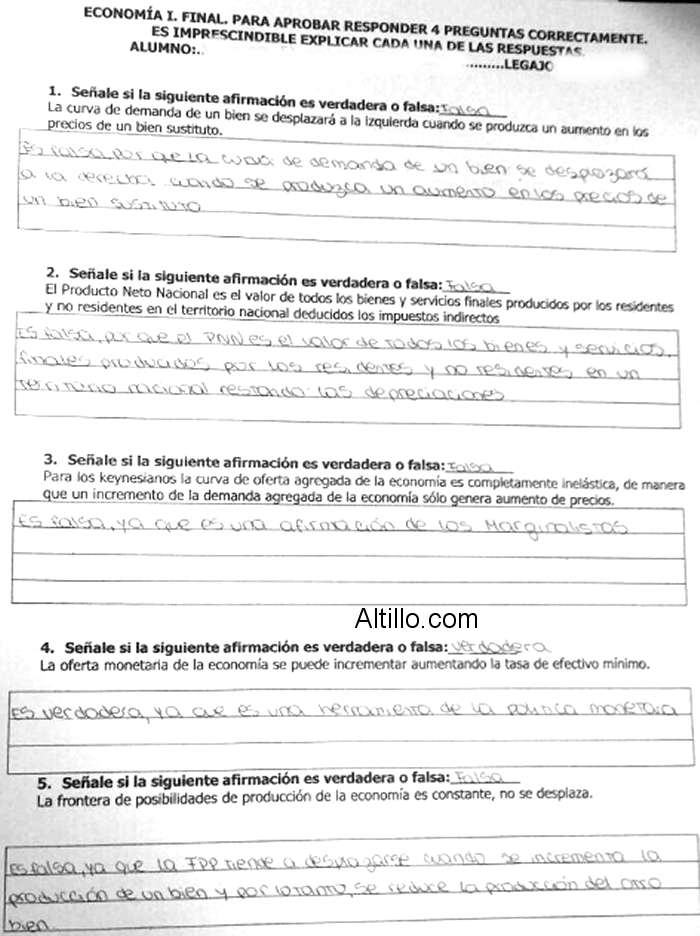 ECONOMÍA I. FINAL. PARA APROBAR RESPONDER 4 PREGUNTAS CORRECTAMENTE.
ES IMPRESCINDIBLE EXPLICAR CADA UNA DE LAS RESPUESTAS.
ALUMNO:.. .........LEGAJO
1. Señale si la siguiente afirmación es verdadera o falsa: Falsa
La curva de demanda de un bien se desplazará a la izquierda cuando se produzca un aumento en los
precios de un bien sustituto.
Es falsa, por que la curva de demanda de un bien se desplazará
a la derecha cuando se produzca un aumento en los precios de
un bien sustituto
2. Señale si la siguiente afirmación es verdadera o falsa: Falsa
El Producto Neto Nacional es el valor de todos los bienes y servicios finales producidos por los residentes
y no residentes en el territorio nacional deducidos los impuestos indirectos
Es falsa, por que el PNN es el valor de todos los bienes y servicios
finales producidos por los residentes y no residentes en un
territorio nacional restando las depreciaciones
3. Señale si la siguiente afirmación es verdadera o falsa: Falsa
Para los keynesianos la curva de oferta agregada de la economía es completamente inelástica, de manera
que un incremento de la demanda agregada de la economía sólo genera aumento de precios.
Es falsa, ya que es una afirmación de los Marginalistas
Altillo.com
4. Señale si la siguiente afirmación es verdadera o falsa: verdadera
La oferta monetaria de la economía se puede incrementar aumentando la tasa de efectivo mínimo.
Es verdadera, ya que es una herramienta de la politica monetaria
5. Señale si la siguiente afirmación es verdadera o falsa: Falsa
La frontera de posibilidades de producción de la economía es constante, no se desplaza.
Es falsa, ya que la FPP tiende a desplazarse cuando se incrementa la
producción de un bien y por lo tanto, se reduce la producción del otro
bien